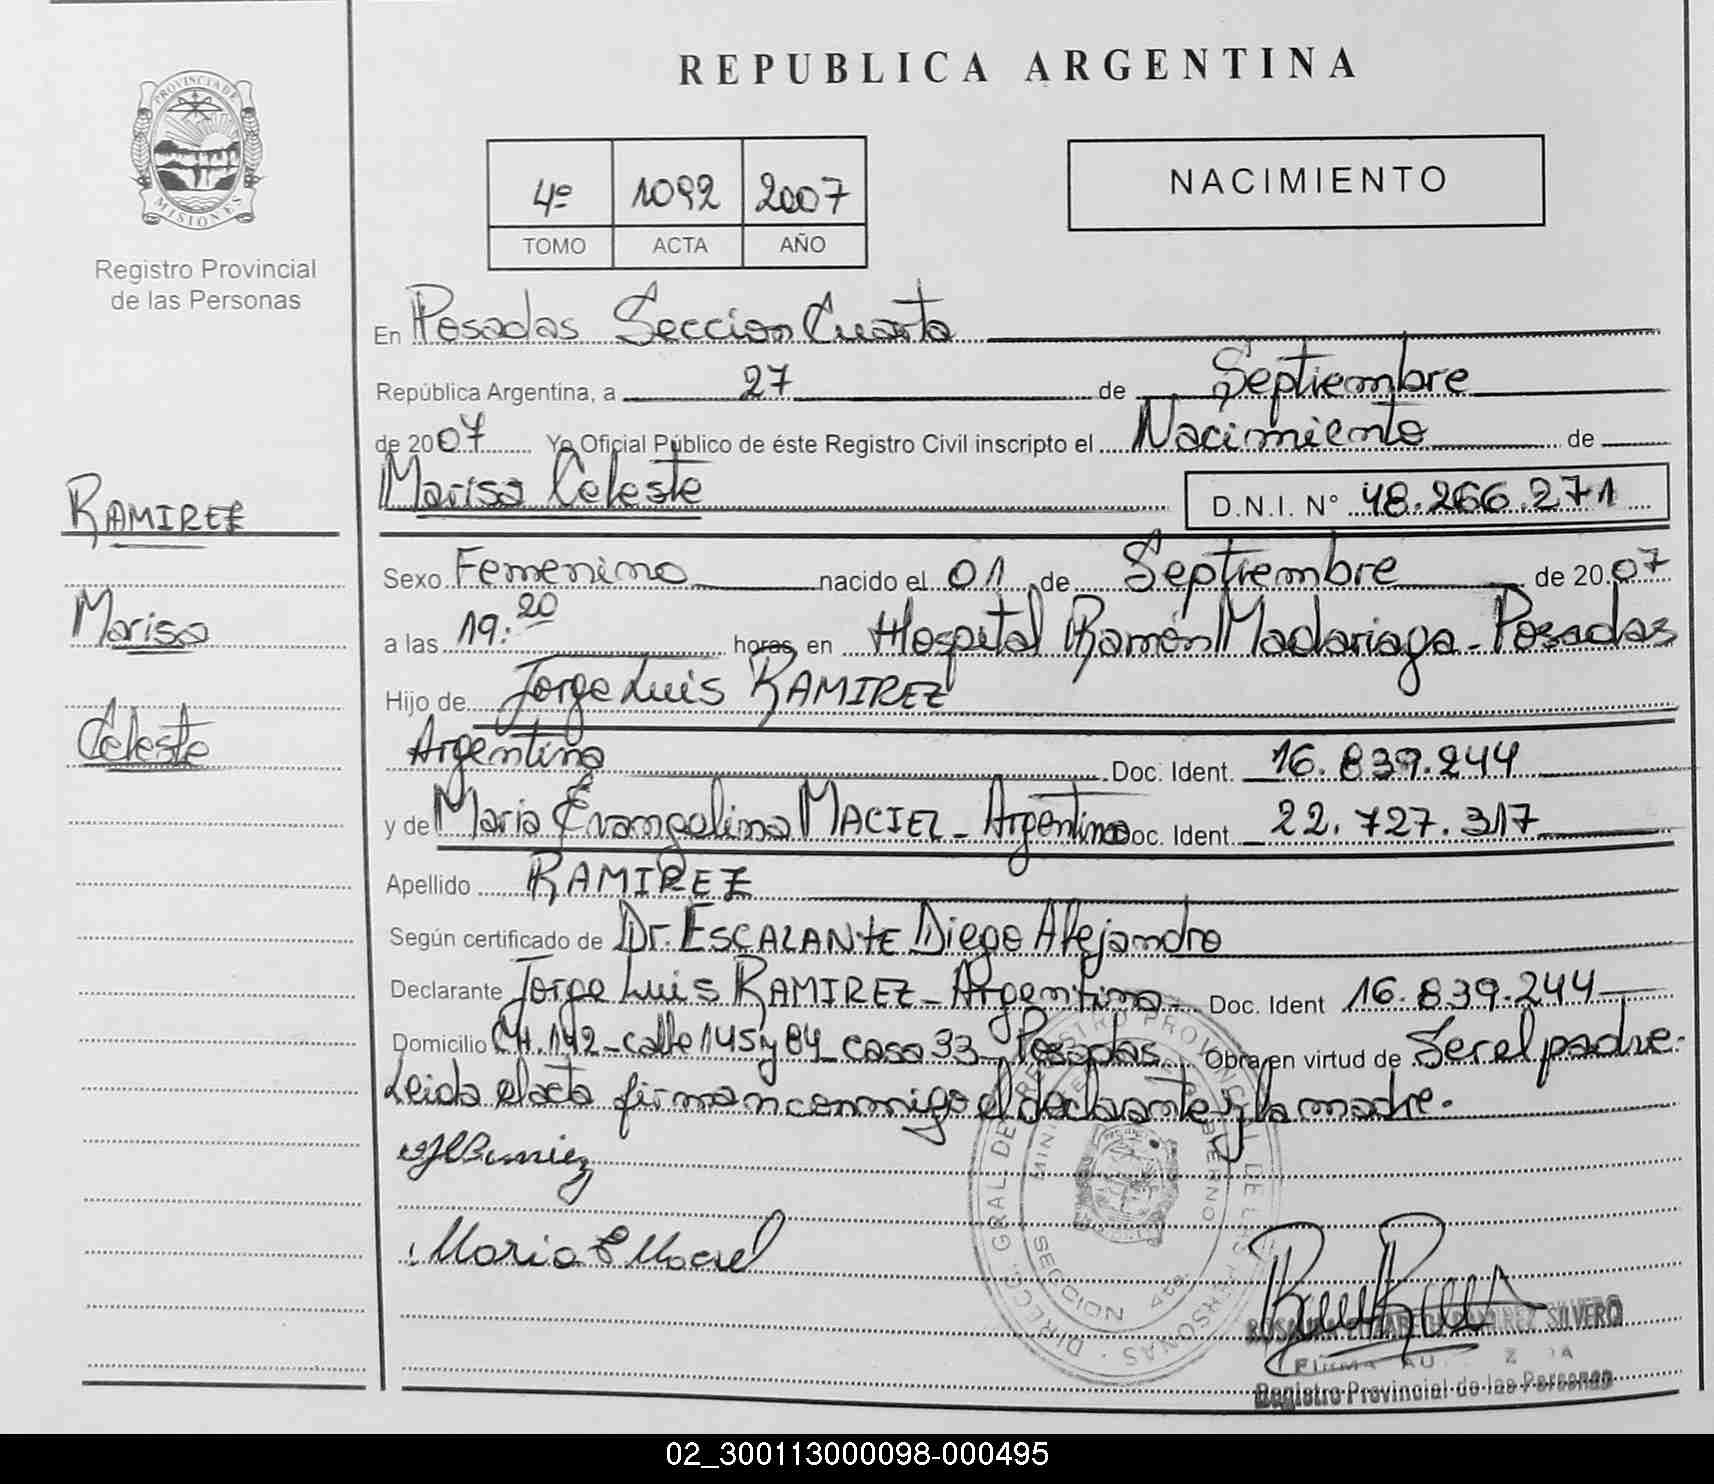 REPUBLICA ARGENTINA
PROVINCIA DE MISIONES
Registro Provincial
de las Personas
4º 1092 2007
TOMO ACTA AÑO
NACIMIENTO
En Posadas Seccion Cuarta
República Argentina, a 27 de Septiembre
de 2007 Yo Oficial Público de éste Registro Civil inscripto el Nacimiento de
Marisa Celeste D.N.I. N° 48.266.271
RAMIREZ
Marisa
Celeste
Sexo Femenino nacido el 01 de Septiembre de 2007
a las 19:20 horas en Hospital Ramón Madariaga - Posadas
Hijo de Jorge Luis RAMIREZ
Argentino Doc. Ident. 16.839.244
y de Maria Evangelina MACIEL - Argentina Doc. Ident. 22.727.317
Apellido RAMIREZ
Según certificado de Dr. ESCALANTE Diego Alejandro
Declarante Jorge Luis RAMIREZ - Argentino - Doc. Ident 16.839.244
Domicilio CH. 142 - calle 145 y 84 - casa 33 - Posadas Obra en virtud de Ser el padre.
Leida el acta firman conmigo el declarante y la madre.
Maria E Maciel
DIRECC. GRAL. DE REGISTRO PROVINCIAL DE LAS PERSONAS
SECCION 4ta
RAMIREZ SILVERO
Registro Provincial de las Personas
02_300113000098-000495